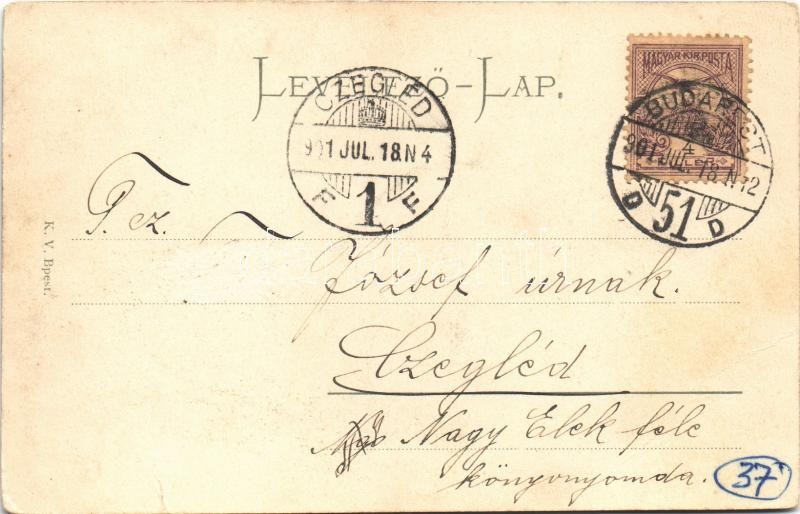 LEVELEZŐ-LAP.
MAGYAR KIR. POSTA
CZEGLÉD
901 JUL. 18. N 4
F 1 F
BUDAPEST
901 JUL. 18. N 12
D 51 D
T. cz.
József úrnak.
Czegléd
Nagy Elek féle
könyvnyomda.
K. V. Bpest.
37